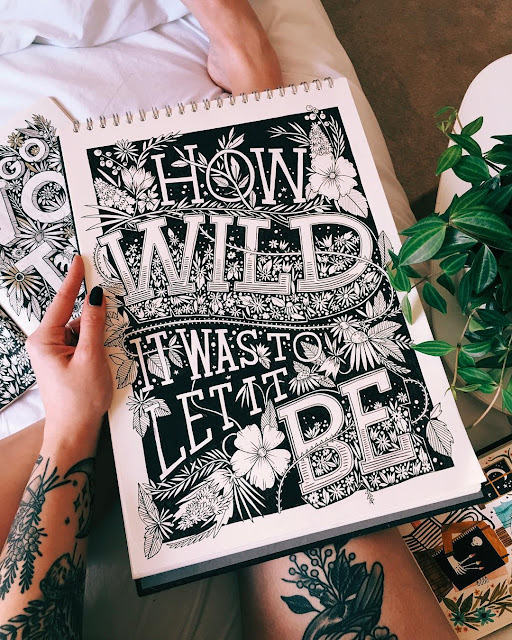 HOW
WILD
IT WAS TO
LET IT
BE
GO